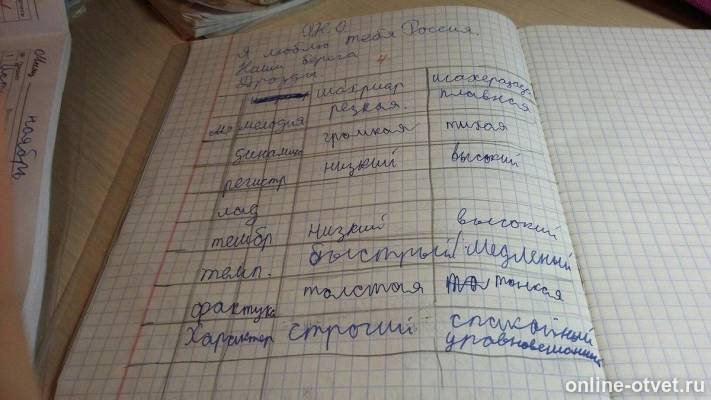 Я люблю тебя Россия.
Наши берега
Дрозды
4
шахриар шахеразада
мелодия резкая. плавная
динамика громкая тихая
регистр низкий высокий
лад
тембр низкий высокий
темп. быстрый медленый
фактура толстая тонкая
Характер строгий спакойный
уравновешанный
ноябрь
online-otvet.ru